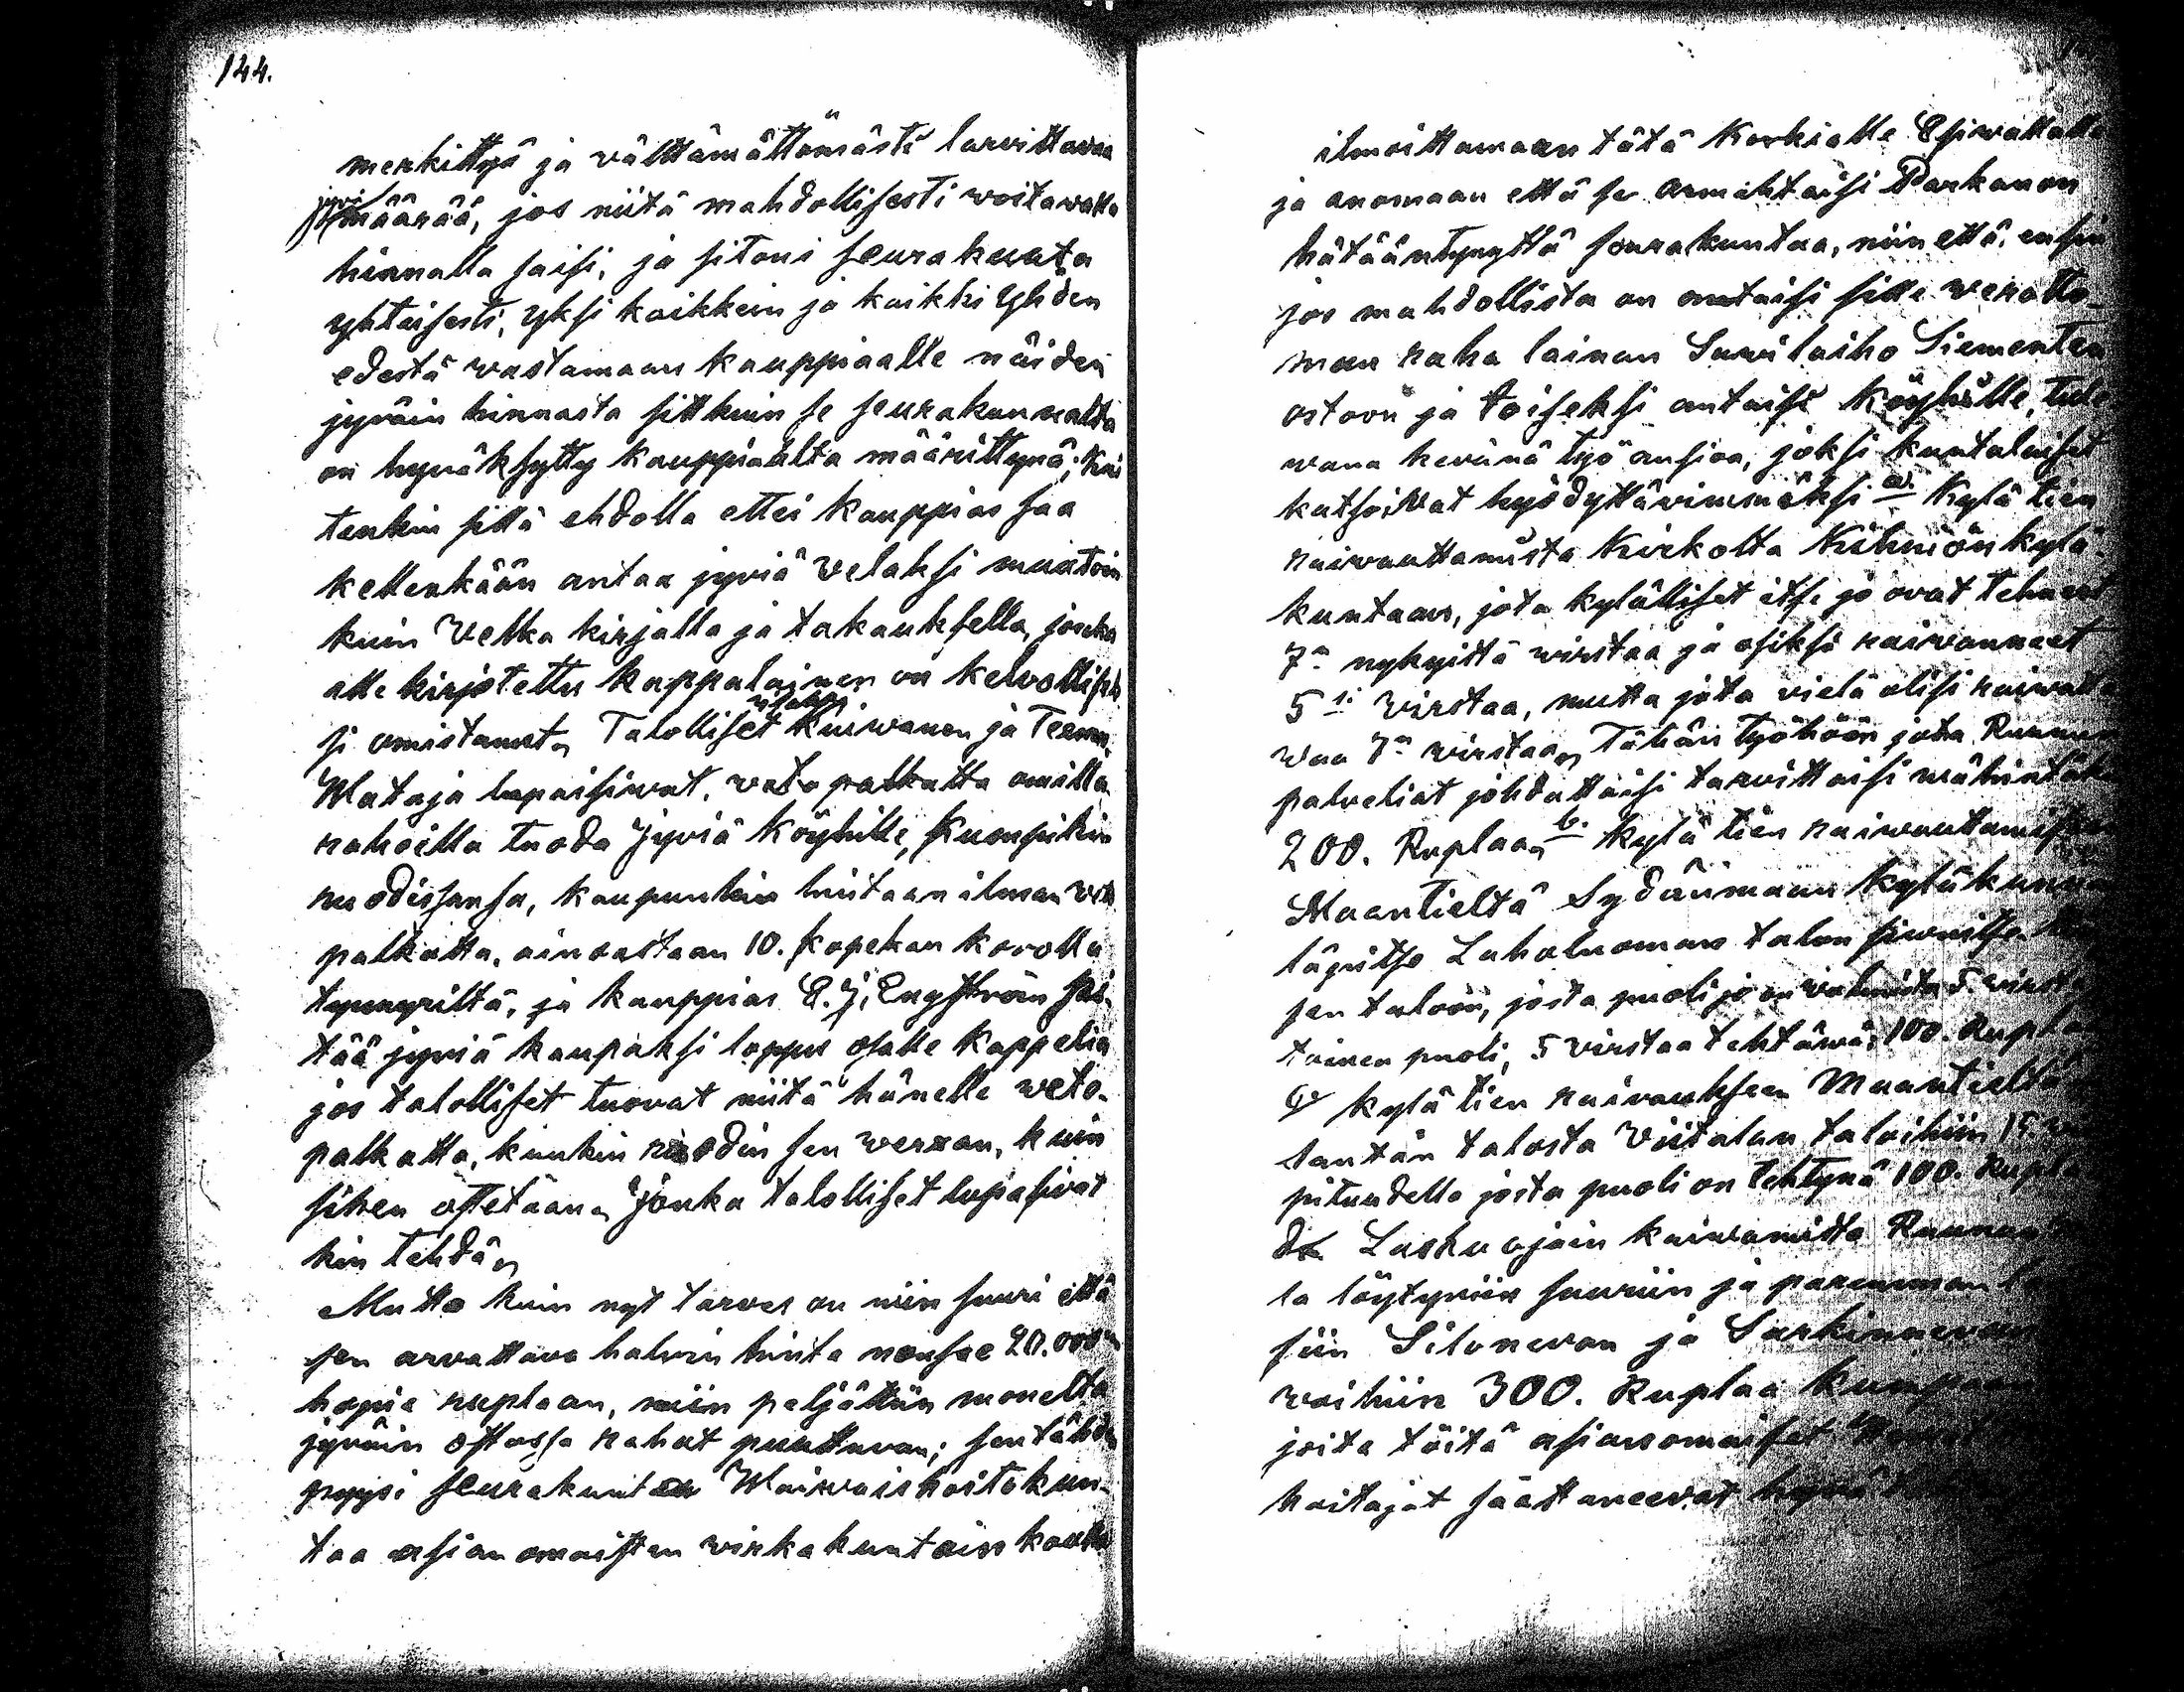 144.
merkittyä ja välttämättömästi tarvittavaa
jyvi
määrää, jos niitä mahdollisesti voitavalla
hinnalla saisi, ja sitoui seurakunta
yhteisesti, yksi kaikkein ja kaikki yhden
edestä vastamaan kauppiaalle näiden
jyväin hinnasta sittkuin se seurakunnalta
on hyväksytty kauppiaalta määrittynä; kui
tenkin sillä ehdolla ettei kauppias saa
kellenkään antaa jyviä velaksi muutoin
kuin Velka kirjalla ja takauksella, jonka
alle kirjotettu kappalainen on kelvollisek
si omistanut. Talolliset Kuivanen ja Teemu
Mataja lupaisivat, veto palkatta omilla
rahoilla tuoda Jyviä Köyhille, kumpikin
ruodissansa, kaupunkin hintaan ilman veto
palkatta, ainoastaan 10. kopekan korolla
tynnyriltä, ja kauppias E. J. Engström pi-
tää jyviä kaupaksi loppu osalle kappelia
jos talolliset tuovat niitä hänelle veto-
palkatta, kunkin ruodin sen verran, kuin
siihen ostetaan, jonka talolliset lupasivat
kin tehdä,
Mutta kuin nyt tarves on niin suuri että
sen arvattava halvin hinta nousee 20.000
hopia ruplaan, niin peljättiin monelta
jyväin ostossa rahat puuttuvan; sentähden
pyysi seurakunta Waivaishoitokun-
taa asianomaisten virkakuntain kautta
ilmoittamaan tätä Korkialle Esivallalle
ja anomaan että se armahtaisi Parkanon
hätääntynyttä seurakuntaa, niin että, ensin
jos mahdollista on antaisi sille veratto-
man raha lainan Suvilaiho Siementen
ostoon ja toiseksi antaisi köyhille, tule
vana kevänä työ ansioa, joksi kuntalaiset
katsoivat hyödyttävimmäksi a. Kylä tien
raivauttamista Kirkolta Kihniön kylä-
kuntaan, jota kylälliset itse jo ovat tehneet
7ä nykyistä virstaa ja osiksi raivanneet
5si virstaa, mutta jota vielä olisi raivatta
vaa 7ä virstaa, Tähän työhöön jota Ruunun
palveliat johdattaisi tarvittaisi wähintäin
200. Ruplaa, b. kylä tien raivauttamiseen
Maantieltä Sydänmaan Kyläkunnan
läpitse Laholuoman talon sivuitse
sen taloon, josta puoli jo on valmista 5. virsta
toinen puoli, 5 virstaa tehtävä, 100. Rupla
c. kylä tien raivaukseen Maantieltä
talosta Viitalan taloihin 15.
pituudella josta puoli on tehtynä 100. Rupla
d. Lasku ojain kaivamista Ruunun
la löytyviin suuriin ja paremman la
siin Silonevan ja Sarkinnevan
voihiin 300. Ruplaa kumpaan
joita töitä asianomaiset
hoitajat